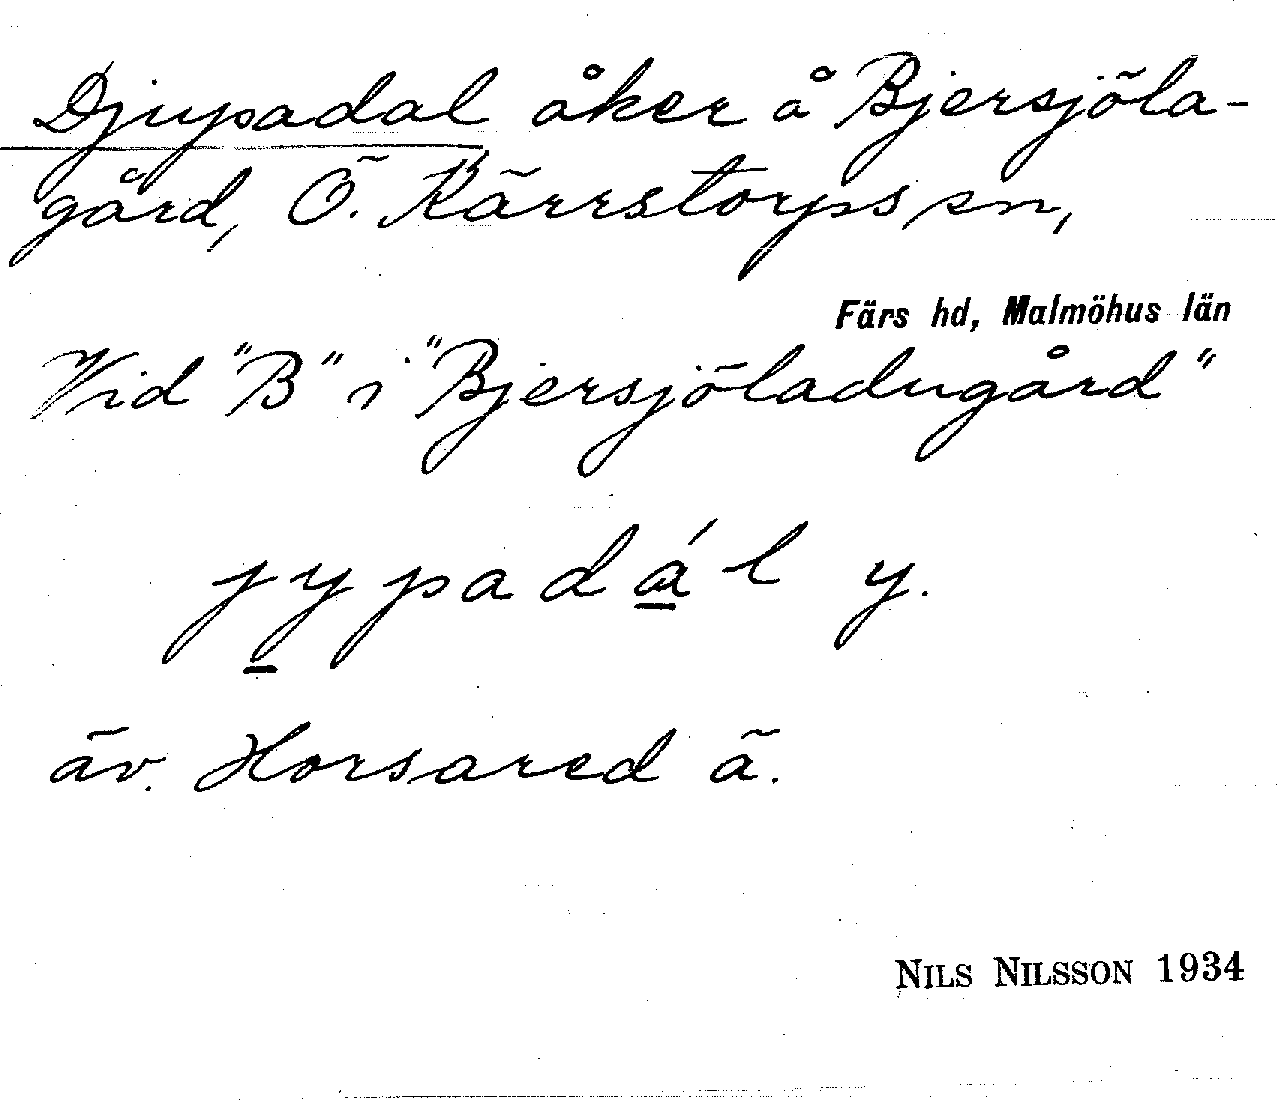 Djupadal åker å Bjersjöla-
gård, Ö. Kärrstorps sn,
Färs hd, Malmöhus län
Vid "B" i "Bjersjöladugård"
jypadál y.
äv. Horsared ä.
NILS NILSSON 1934